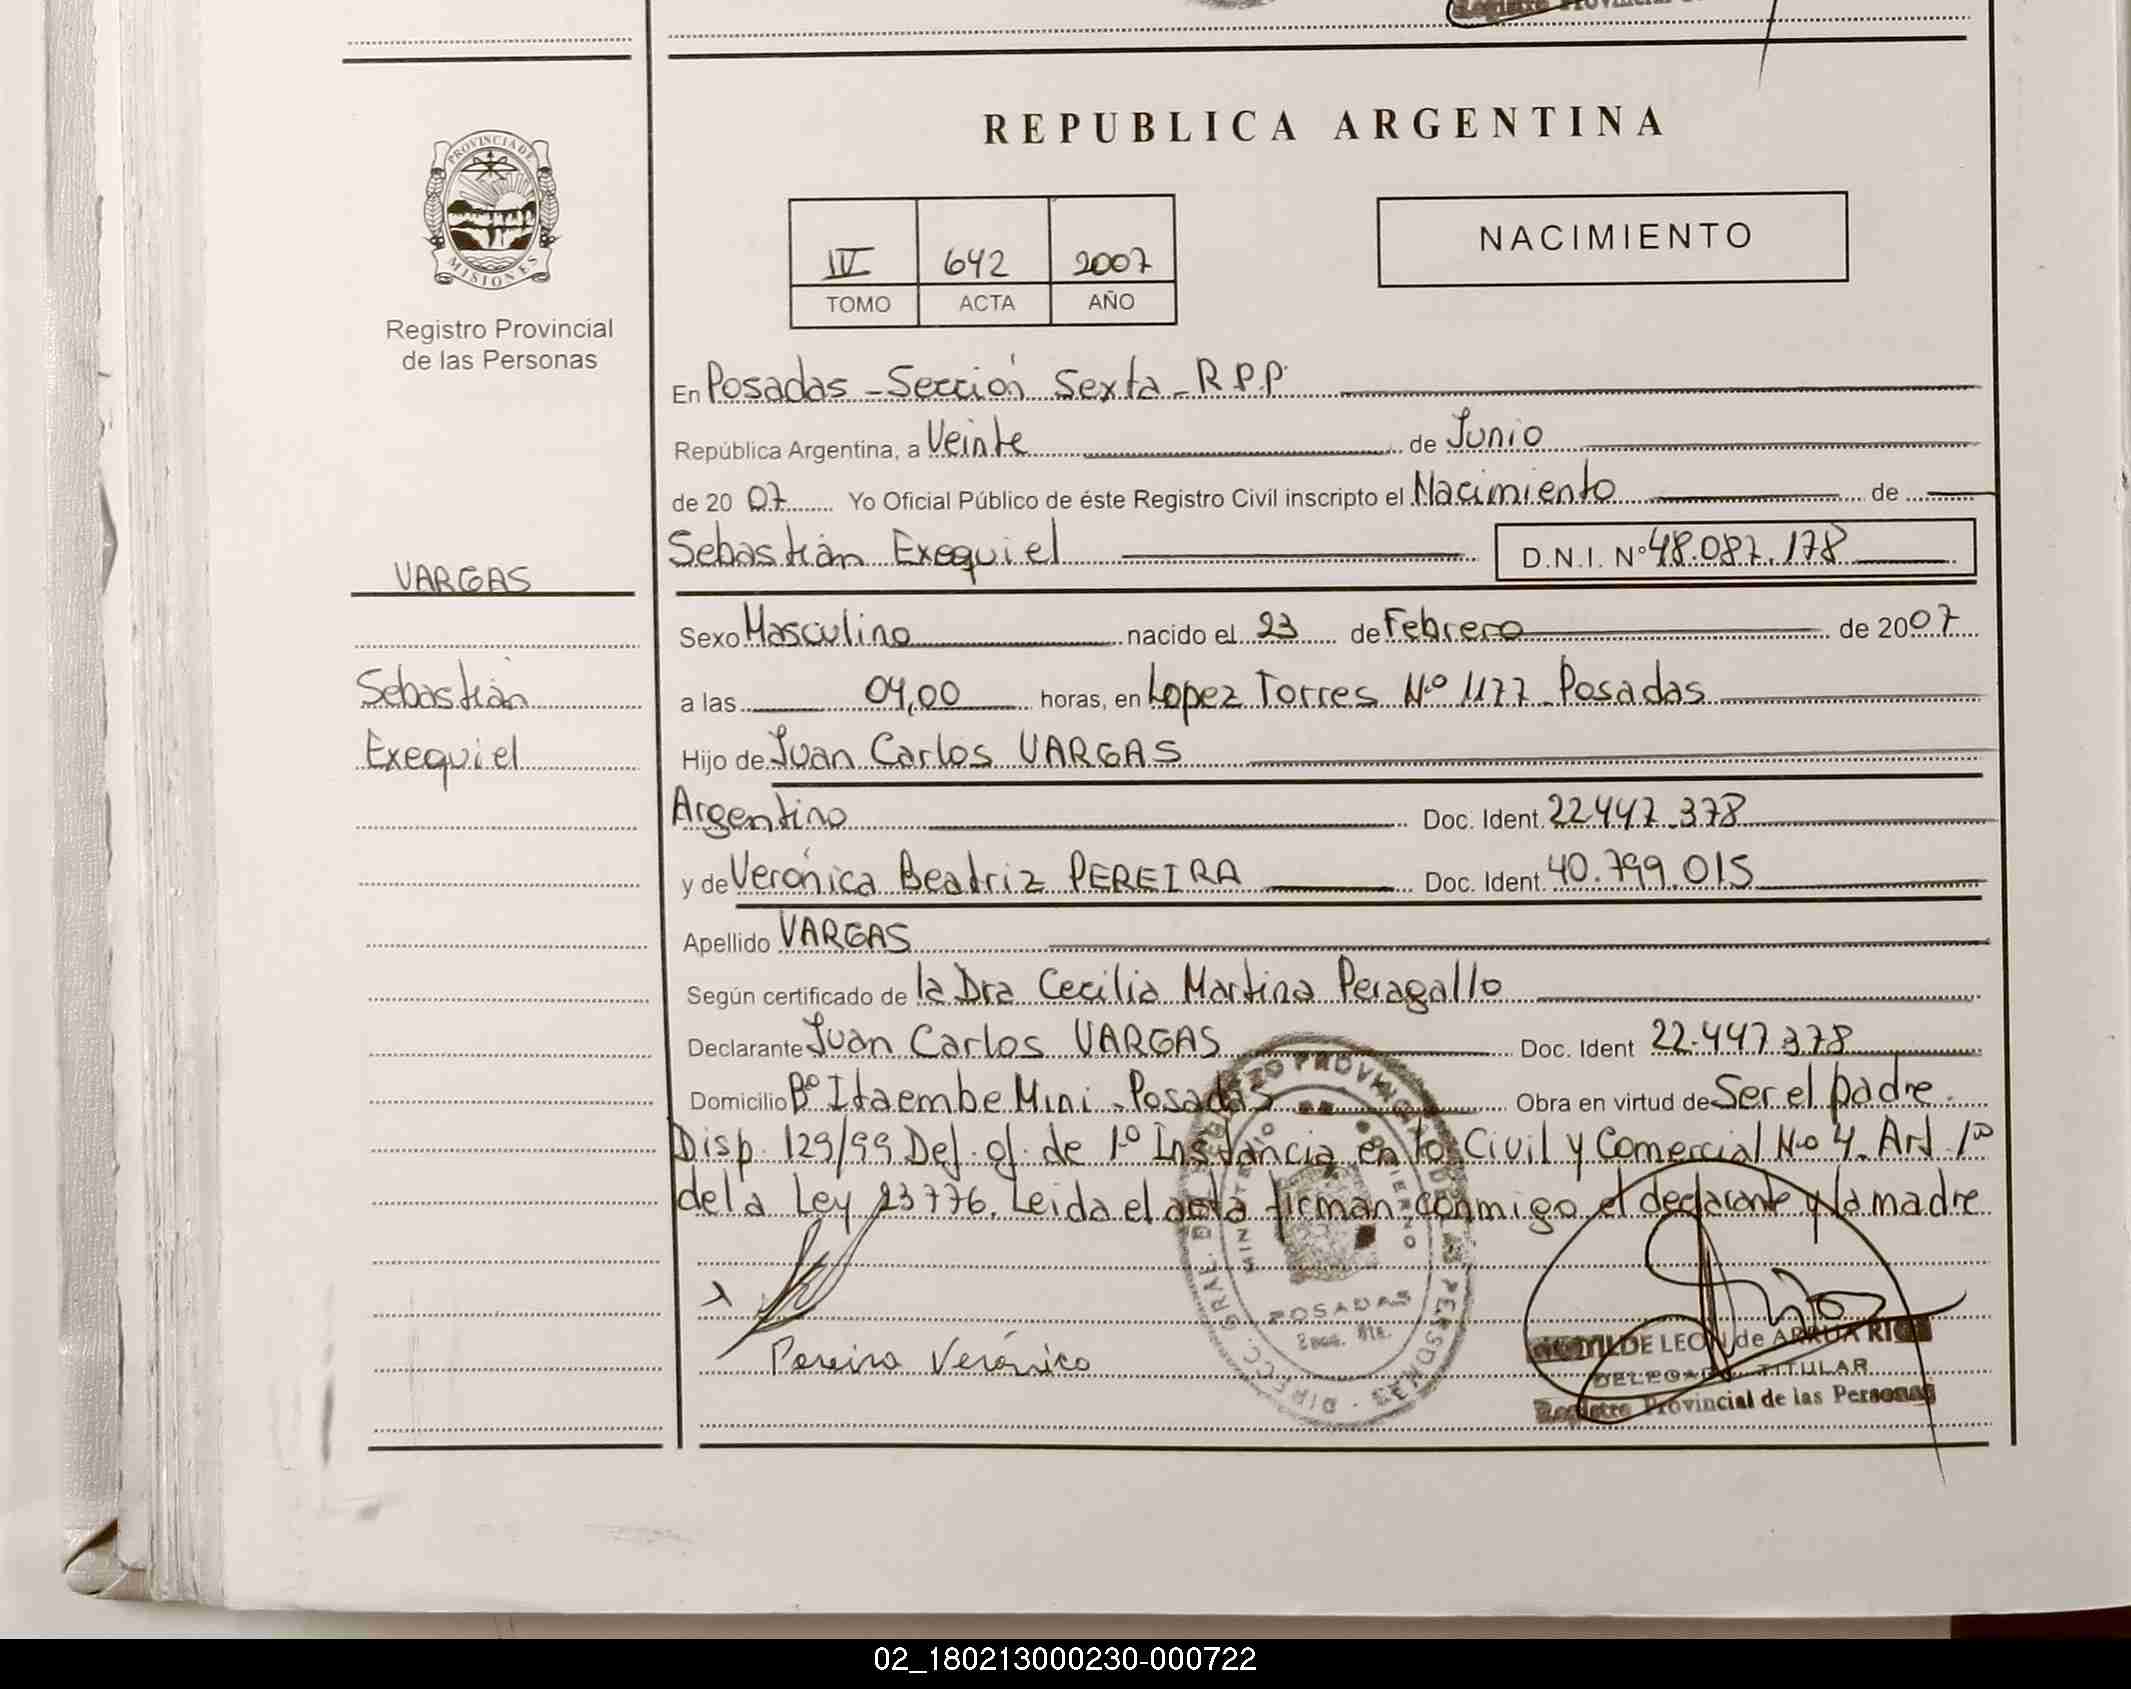 REPUBLICA ARGENTINA
PROVINCIA DE
MISIONES
Registro Provincial
de las Personas
NACIMIENTO
IV 642 2007
TOMO ACTA AÑO
En Posadas - Sección Sexta - R.P.P.
República Argentina, a Veinte de Junio
de 20 07 Yo Oficial Público de éste Registro Civil inscripto el Nacimiento de
Sebastián Exequiel D.N.I. Nº 48.087.178
VARGAS
Sexo Masculino nacido el 23 de Febrero de 2007
Sebastián
a las 04,00 horas, en Lopez Torres Nº 1177 - Posadas
Exequiel
Hijo de Juan Carlos VARGAS
Argentino Doc. Ident. 22.447.378
y de Verónica Beatriz PEREIRA Doc. Ident. 40.799.015
Apellido VARGAS
Según certificado de la Dra Cecilia Martina Peragallo
Declarante Juan Carlos VARGAS Doc. Ident 22.447.378
Domicilio Bº Itaembe Mini - Posadas Obra en virtud de Ser el padre.
Disp. 129/99 Def. of. de 1º Instancia en lo Civil y Comercial Nº 4. Art 1º
de la Ley 23776. Leida el acta firman conmigo el declarante y la madre
Pereira Verónica
POSADAS
DE LEON de ARRUA
DELEGADA TITULAR
Registro Provincial de las Personas
02_180213000230-000722